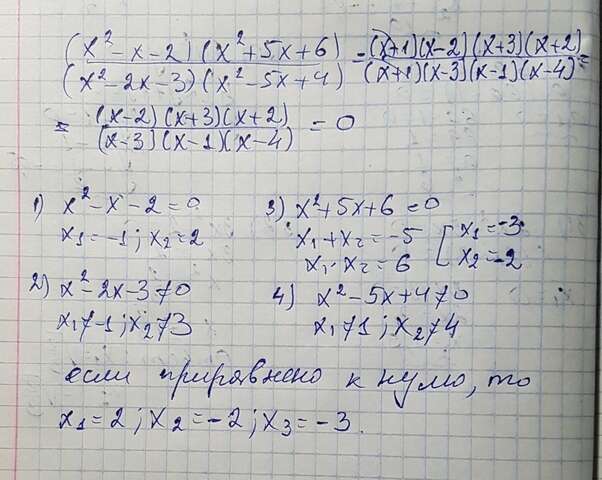 (x²-x-2)(x²+5x+6) / (x²-2x-3)(x²-5x+4) = (x+1)(x-2)(x+3)(x+2) / (x+1)(x-3)(x-1)(x-4) =
= (x-2)(x+3)(x+2) / (x-3)(x-1)(x-4) = 0
1) x²-x-2=0
x₁=-1; x₂=2
3) x²+5x+6=0
x₁+x₂=-5 [x₁=-3
x₁·x₂=6 [x₂=-2
2) x²-2x-3≠0
x₁≠-1; x₂≠3
4) x²-5x+4≠0
x₁≠1; x₂≠4
если приравнено к нулю, то
x₁=2; x₂=-2; x₃=-3.